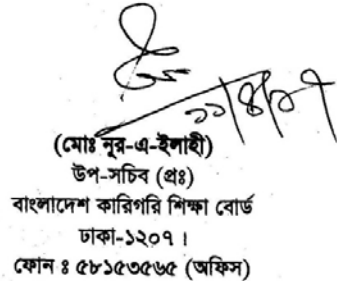 ১১/৪/১৭
(মোঃ নূর-এ-ইলাহী)
উপ-সচিব (প্রঃ)
বাংলাদেশ কারিগরি শিক্ষা বোর্ড
ঢাকা-১২০৭ ।
ফোন ঃ ৫৮১৫৩৫৬৫ (অফিস)